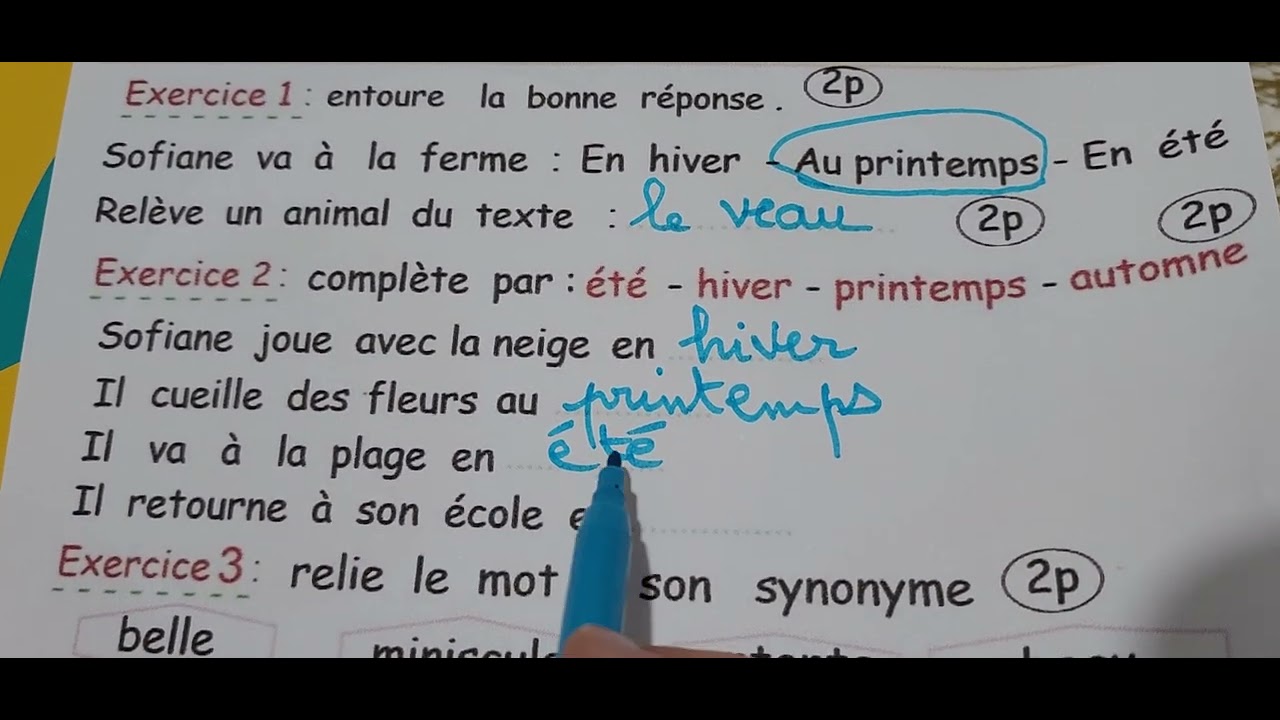 Exercice 1 : entoure la bonne réponse. 2p
Sofiane va à la ferme : En hiver - Au printemps - En été
Relève un animal du texte : le veau 2p 2p
Exercice 2 : complète par : été - hiver - printemps - automne
Sofiane joue avec la neige en hiver
Il cueille des fleurs au printemps
Il va à la plage en été
Il retourne à son école
Exercice 3 : relie le mot son synonyme 2p
belle